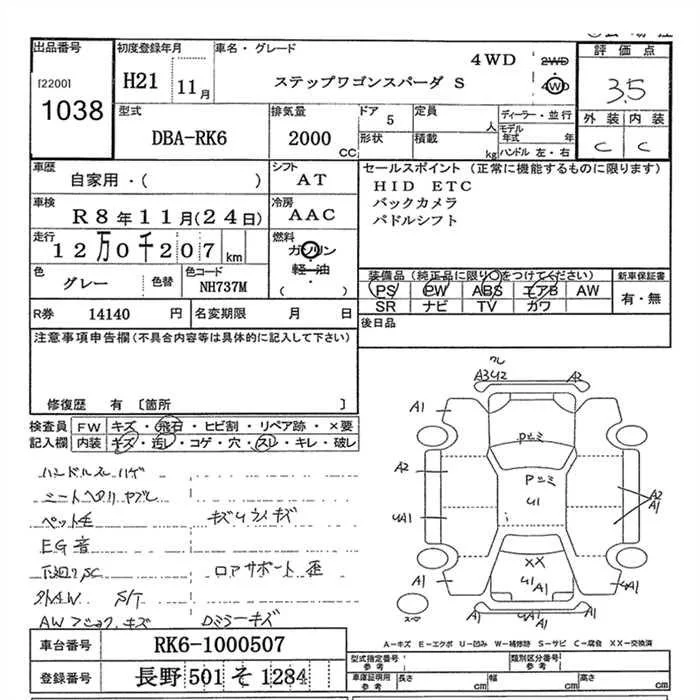 出品番号
[2200]
1038
初度登録年月
H21 11月
車名・グレード
4WD
ステップワゴンスパーダ S
2WD
4WD
評価点
3.5
外装 内装
C C
型式
DBA-RK6
排気量
2000
CC
ドア
5
形状
定員
人
積載
kg
ディーラー・並行
モデル年式 年
ハンドル 左・右
車歴
自家用・( )
シフト
AT
車検
R8年11月(24日)
冷房
AAC
走行
12万0千207km
燃料
ガソリン
軽・油
( )
色
グレー
色替
色コード
NH737M
R券 14140 円
名変期限 月 日
セールスポイント (正常に機能するものに限ります)
HID ETC
バックカメラ
パドルシフト
装備品 (純正品に限り○をつけてください)
PS PW ABS エアB AW
SR ナビ TV カワ
新車保証書
有・無
後日品
注意事項申告欄(不具合内容等は具体的に記入して下さい)
修復歴 有 [箇所 ]
検査員記入欄
FW キズ・飛石・ヒビ割・リペア跡・×要
内装 キズ・汚レ・コゲ・穴・スレ・キレ・破レ
ハンドルスレハゲ
シートヘタリ ヤブレ
ペット毛
キズ
EG音
下廻りSC
ロアサポート 歪
S/T
キズ
Dミラーキズ
A3U2
A2
A1
A1
Pシミ
A2
Pシミ
U1
A2
A1
UA1
XX
A1
U1
A1
UA1
A1
A1
A-キズ E-エクボ U-凹み W-補修跡 S-サビ C-腐食 XX-交換済
車台番号
RK6-1000507
登録番号
長野 501 そ 1284
型式指定番号
参考
類別区分番号
参考
車庫証明用
参考
長さ cm
幅 cm
高さ cm